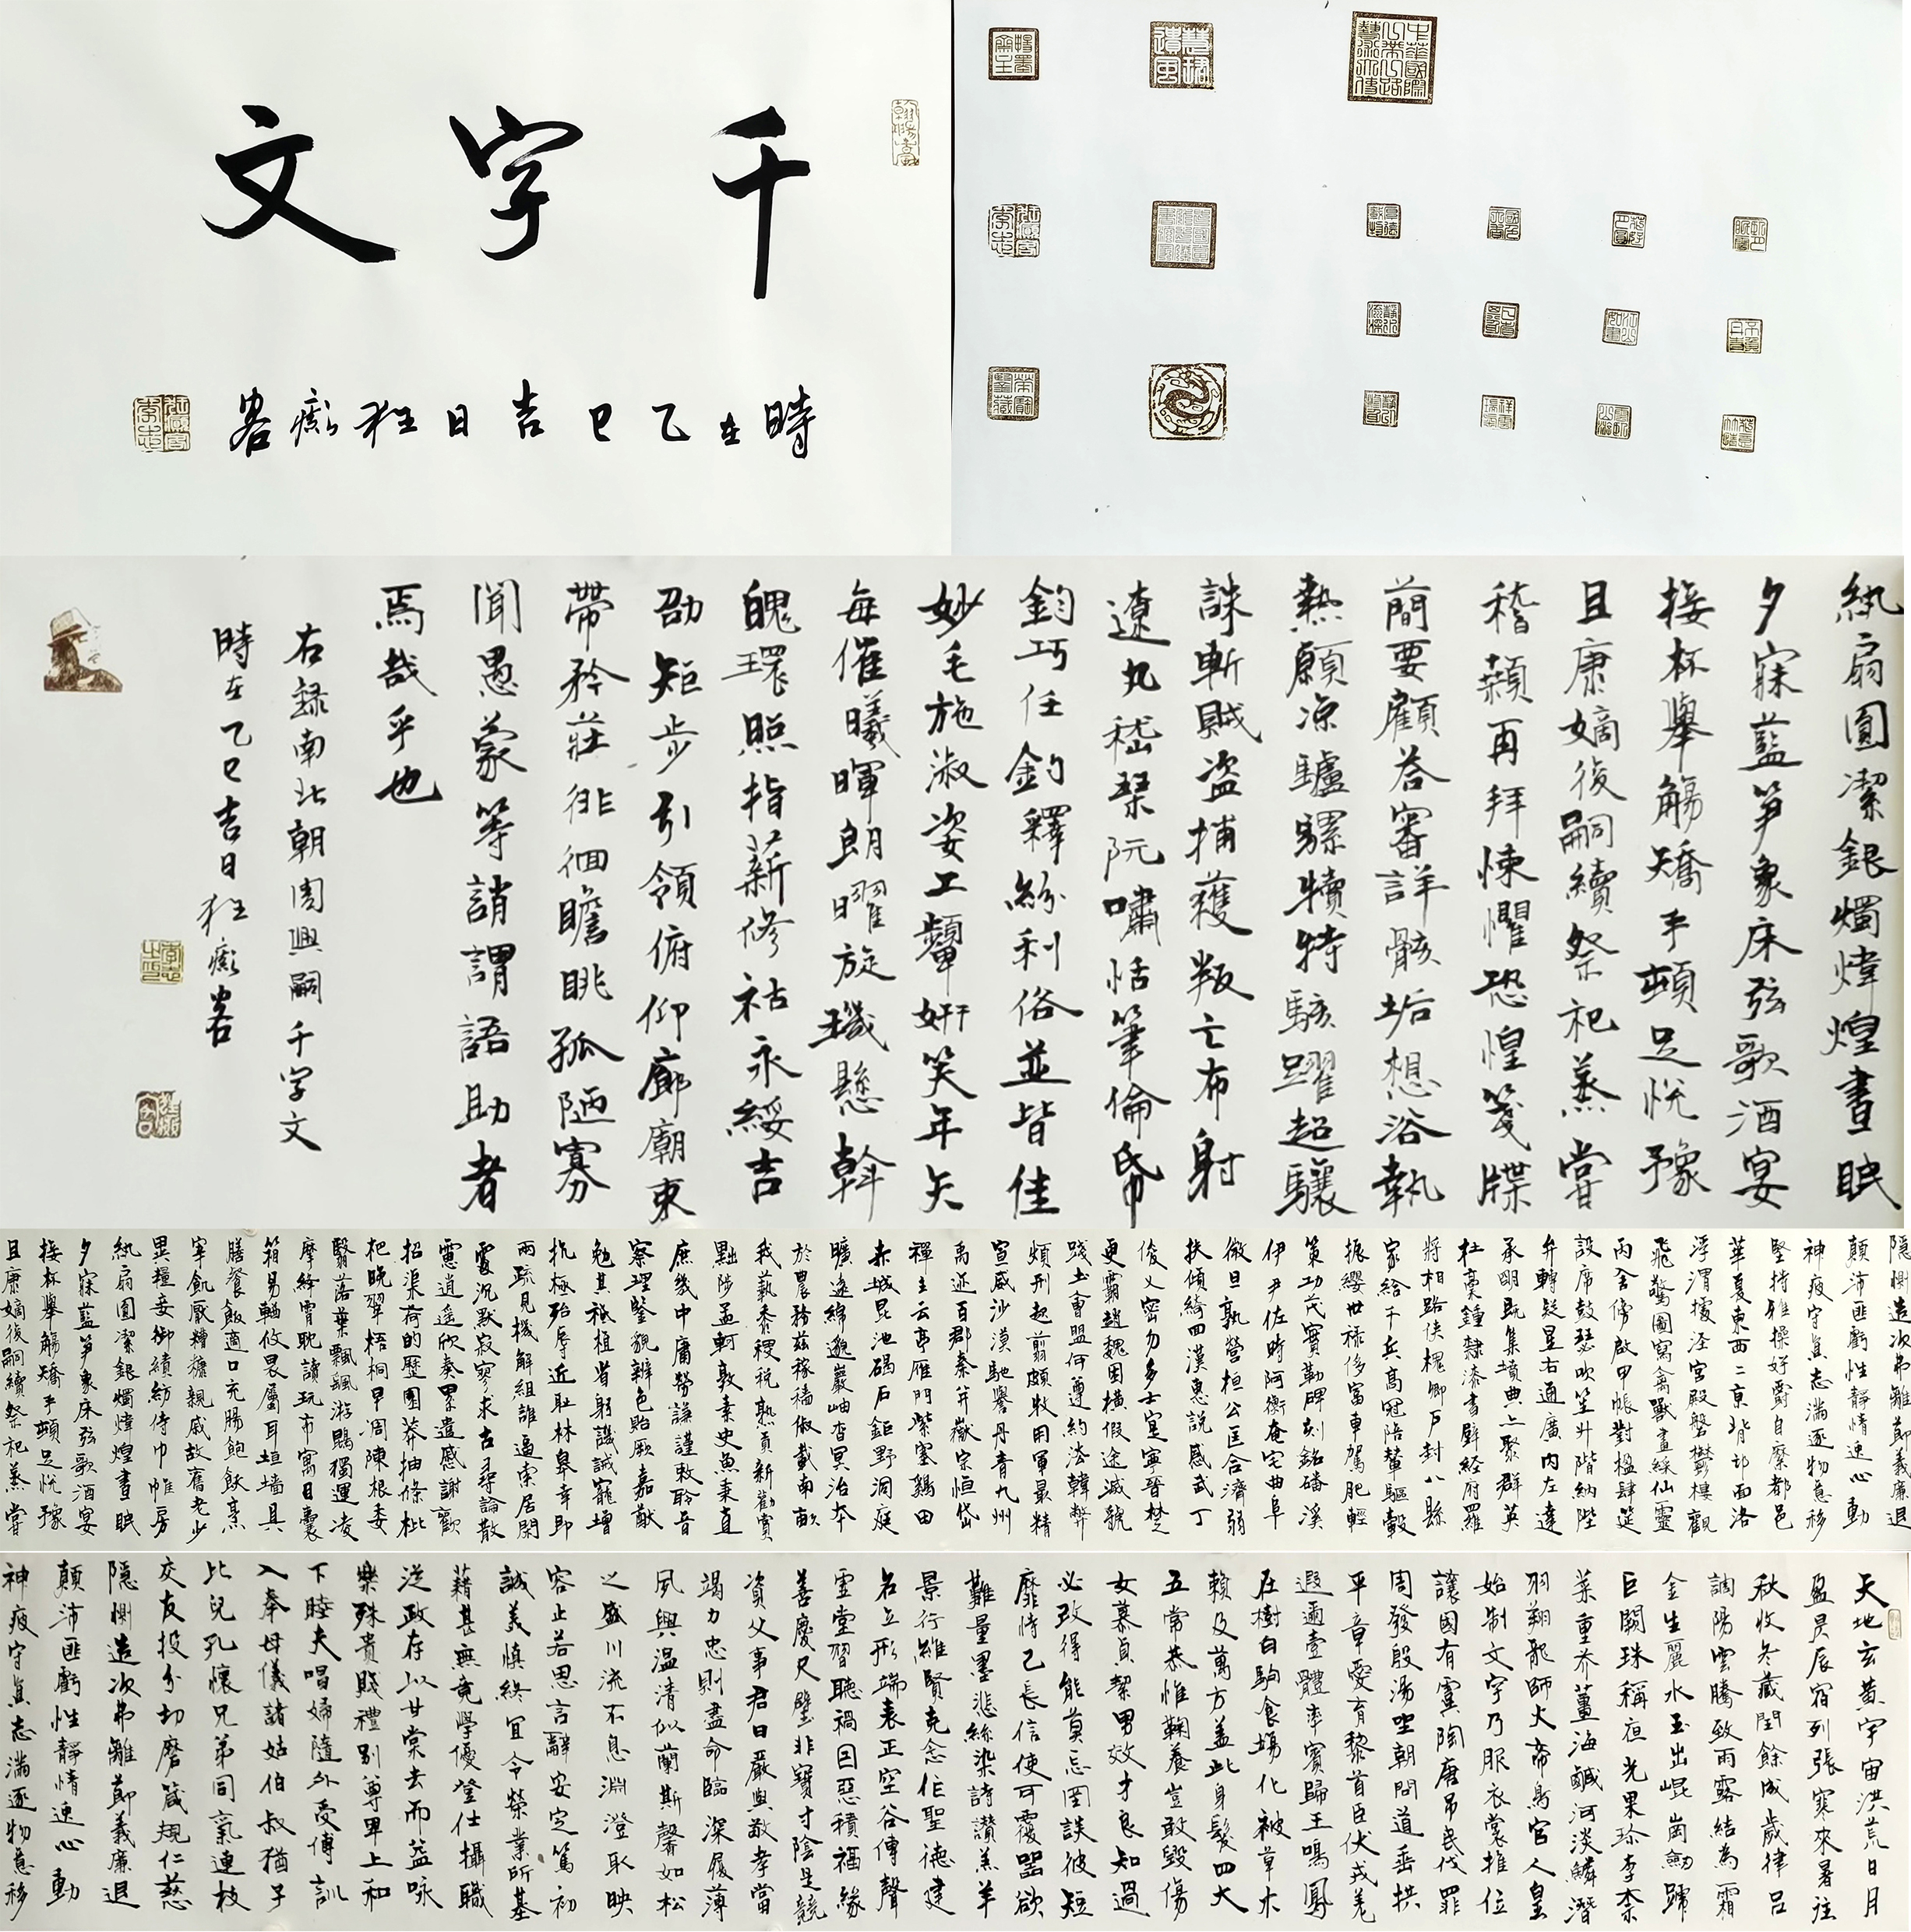 千字文
時在乙巳吉日狂癫客
紈扇圓潔銀燭煒煌晝眠
夕寐藍笋象床弦歌酒宴
接杯舉觴矯手頓足悦豫
且康嫡後嗣續祭祀蒸嘗
稽顙再拜悚懼恐惶箋牒
簡要顧答審詳骸垢想浴執
熱願凉驢騾犢特駭躍超驤
誅斬賊盗捕獲叛亡布射
遼丸嵇琴阮嘯恬筆倫帋
鈞巧任釣釋紛利俗並皆佳
妙毛施淑姿工顰妍笑年矢
每催曦暉朗曜旋璣懸斡
魄環照指薪修祜永綏吉
劭矩步引領俯仰廊廟束
帶矜莊徘徊瞻眺孤陋寡
聞愚蒙等誚謂語助者
焉哉乎也
右録南北朝周興嗣千字文
時在乙巳吉日狂癫客
隱惻造次弗離節義廉退
顛沛匪虧性静情逸心動
神疲守真志滿逐物意移
堅持雅操好爵自縻都邑
華夏東西二京背邙面洛
浮渭據涇宫殿盤鬱樓觀
飛驚圖寫禽獸畫綵仙靈
丙舍傍啟甲帳對楹肆筵
設席鼓瑟吹笙升階納陛
弁轉疑星右通廣内左達
承明既集墳典亦聚群英
杜稾鍾隸漆書壁經府羅
將相路俠槐卿户封八縣
家給千兵高冠陪輦驅轂
振纓世禄侈富車駕肥輕
策功茂實勒碑刻銘磻溪
伊尹佐時阿衡奄宅曲阜
微旦孰營桓公匡合濟弱
扶傾綺回漢惠説感武丁
俊乂密勿多士寔寧晉楚
更霸趙魏困横假途滅虢
踐土會盟何遵約法韓弊
煩刑起翦頗牧用軍最精
宣威沙漠馳譽丹青九州
禹迹百郡秦并嶽宗恒岱
禪主云亭雁門紫塞鷄田
赤城昆池碣石鉅野洞庭
曠遠綿邈巖岫杳冥治本
於農務兹稼穡俶載南畝
我藝黍稷税熟貢新勸賞
黜陟孟軻敦素史魚秉直
庶幾中庸勞謙謹敕聆音
察理鑒貌辨色貽厥嘉猷
勉其祗植省躬譏誡寵增
抗極殆辱近耻林皋幸即
兩疏見機解組誰逼索居閑
處沉默寂寥求古尋論散
慮逍遥欣奏累遣慼謝歡
招渠荷的歷園莽抽條枇
杷晚翠梧桐早凋陳根委
翳落葉飄颻游鵾獨運凌
摩絳霄耽讀玩市寓目囊
箱易輶攸畏屬耳垣墻具
膳餐飯適口充腸飽飫烹
宰飢厭糟糠親戚故舊老少
異糧妾御績紡侍巾帷房
紈扇圓潔銀燭煒煌晝眠
夕寐藍笋象床弦歌酒宴
接杯舉觴矯手頓足悦豫
且康嫡後嗣續祭祀蒸嘗
天地玄黄宇宙洪荒日月
盈昃辰宿列張寒來暑往
秋收冬藏閏餘成歲律吕
調陽雲騰致雨露結為霜
金生麗水玉出崐崗劍號
巨闕珠稱夜光果珍李柰
菜重芥薑海鹹河淡鱗潛
羽翔龍師火帝鳥官人皇
始制文字乃服衣裳推位
讓國有虞陶唐吊民伐罪
周發殷湯坐朝問道垂拱
平章愛育黎首臣伏戎羌
遐邇壹體率賓歸王鳴鳳
在樹白駒食場化被草木
賴及萬方蓋此身髮四大
五常恭惟鞠養豈敢毁傷
女慕貞絜男效才良知過
必改得能莫忘罔談彼短
靡恃己長信使可覆器欲
難量墨悲絲染詩讚羔羊
景行維賢克念作聖德建
名立形端表正空谷傳聲
虚堂習聽禍因惡積福緣
善慶尺璧非寶寸陰是競
資父事君曰嚴與敬孝當
竭力忠則盡命臨深履薄
夙興温清似蘭斯馨如松
之盛川流不息淵澄取映
容止若思言辭安定篤初
誠美慎終宜令榮業所基
藉甚無竟學優登仕攝職
從政存以甘棠去而益咏
樂殊貴賤禮别尊卑上和
下睦夫唱婦隨外受傅訓
入奉母儀諸姑伯叔猶子
比兒孔懷兄弟同氣連枝
交友投分切磨箴規仁慈
隱惻造次弗離節義廉退
顛沛匪虧性静情逸心動
神疲守真志滿逐物意移